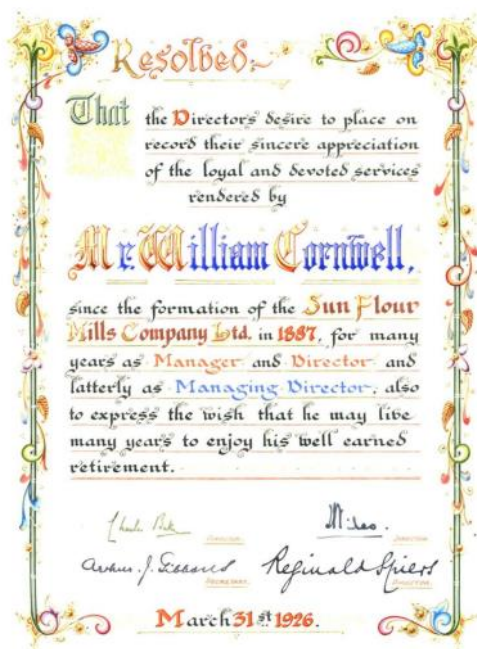 Resolved:~
That the Directors desire to place on
record their sincere appreciation
of the loyal and devoted services
rendered by
Mr. William Cornwell,
since the formation of the Sun Flour
Mills Company Ltd. in 1887, for many
years as Manager and Director and
latterly as Managing Director, also
to express the wish that he may live
many years to enjoy his well earned
retirement.
Charles
DIRECTOR.
DIRECTOR.
Arthur J. Gibbons
SECRETARY.
Reginald Spiers
DIRECTOR.
March 31st 1926.